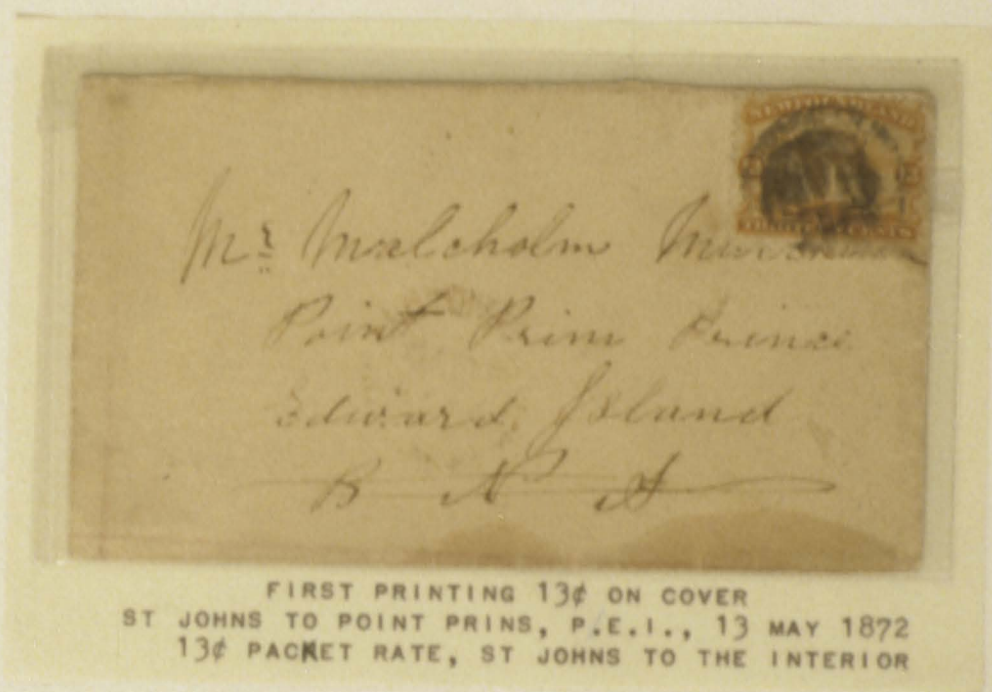 NEWFOUNDLAND
THIRTEEN CENTS
Mr Malcholm
Point Prim Prince
Edward Island
B N A
FIRST PRINTING 13¢ ON COVER
ST JOHNS TO POINT PRINS, P.E.I., 13 MAY 1872
13¢ PACKET RATE, ST JOHNS TO THE INTERIOR